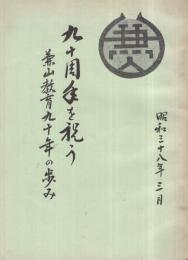 昭和三十八年三月
九十周年を祝う
兼山教育九十年の歩み